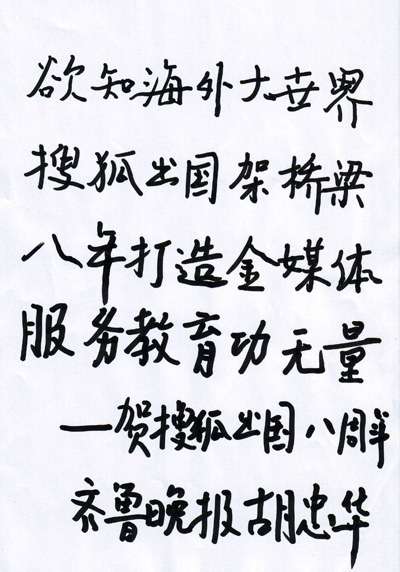 欲知海外大世界
搜狐出国架桥梁
八年打造金媒体
服务教育功无量
—贺搜狐出国八周年
齐鲁晚报胡忠华